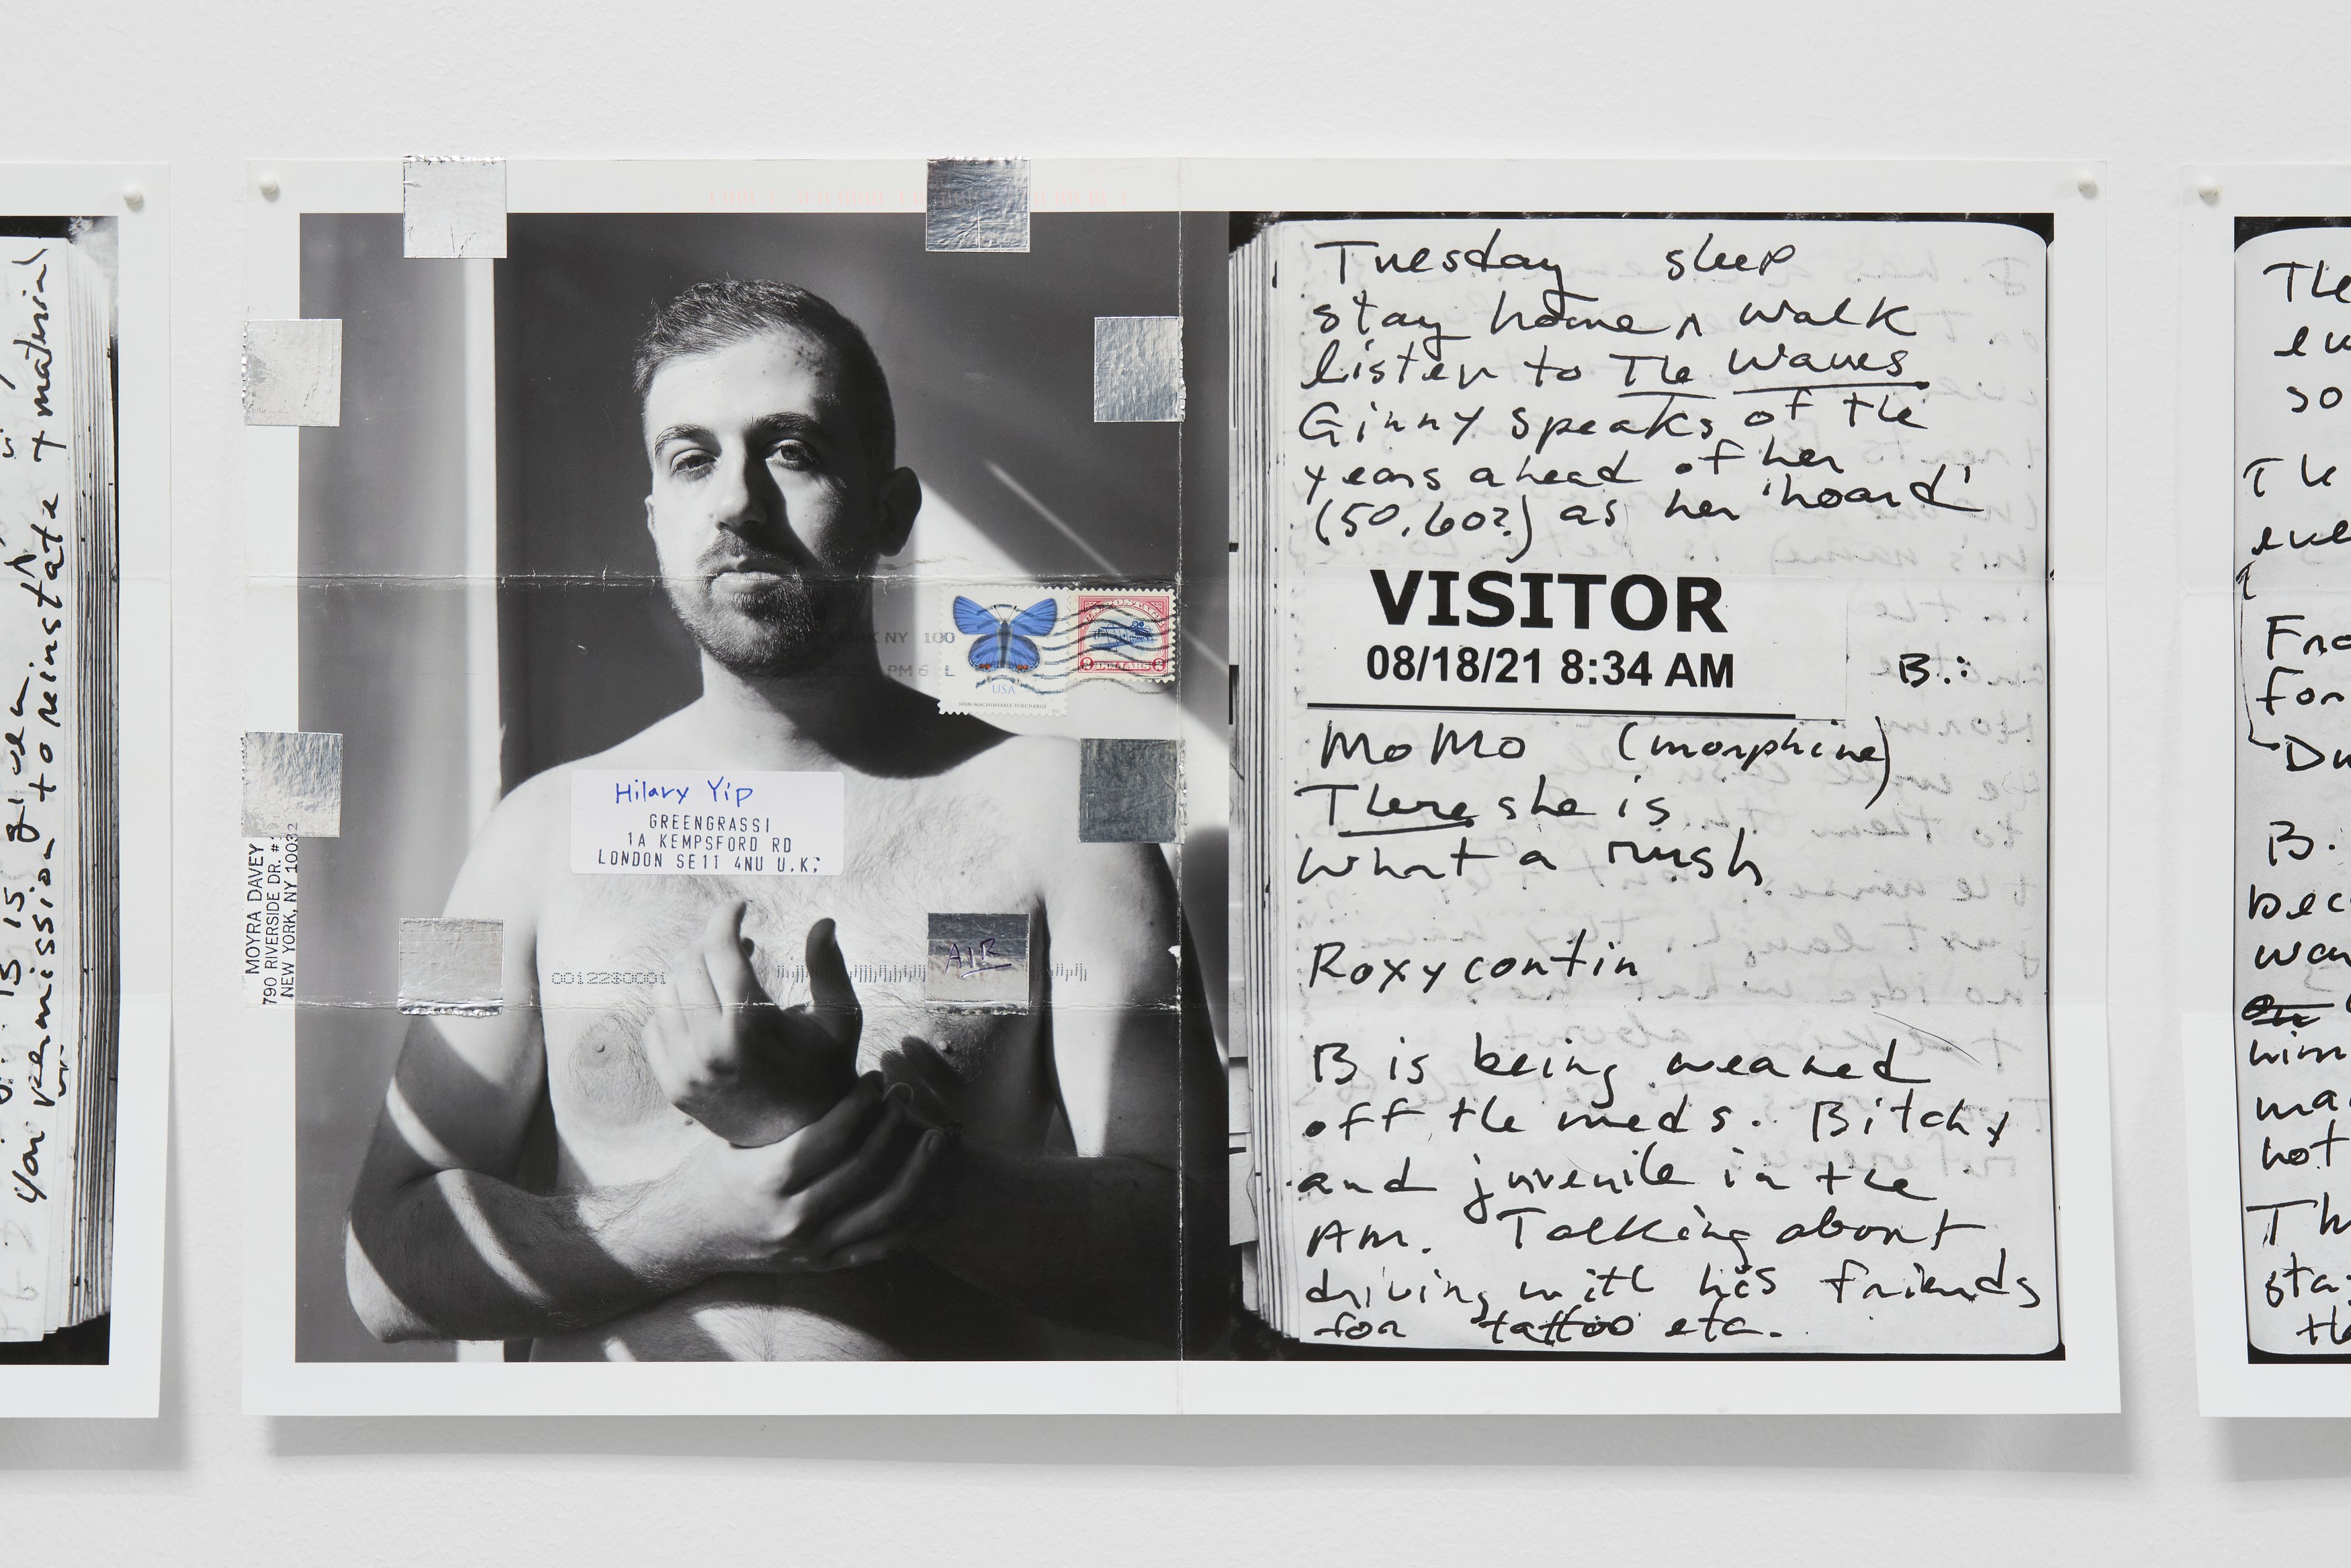 your permission to reinstate + material
MOYRA DAVEY
790 RIVERSIDE DR. #
NEW YORK, NY 10032
YORK NY 100
PM 6 L
USA
NON-MACHINEABLE SURCHARGE
2 DOLLARS 2
Hilary Yip
GREENGRASSI
1A KEMPSFORD RD
LONDON SE11 4NU U.K.
AIR
Tuesday sleep
stay home ^ walk
listen to The Waves
Ginny speaks of the
years ahead of her
(50, 60?) as her 'hoard'
VISITOR
08/18/21 8:34 AM
B.:
MoMo (morphine)
There she is
What a rush
Roxycontin
B is being weaned
off the meds. Bitchy
and juvenile in the
AM. Talking about
driving with his friends
for tattoo etc.
so
for
B.
him
not